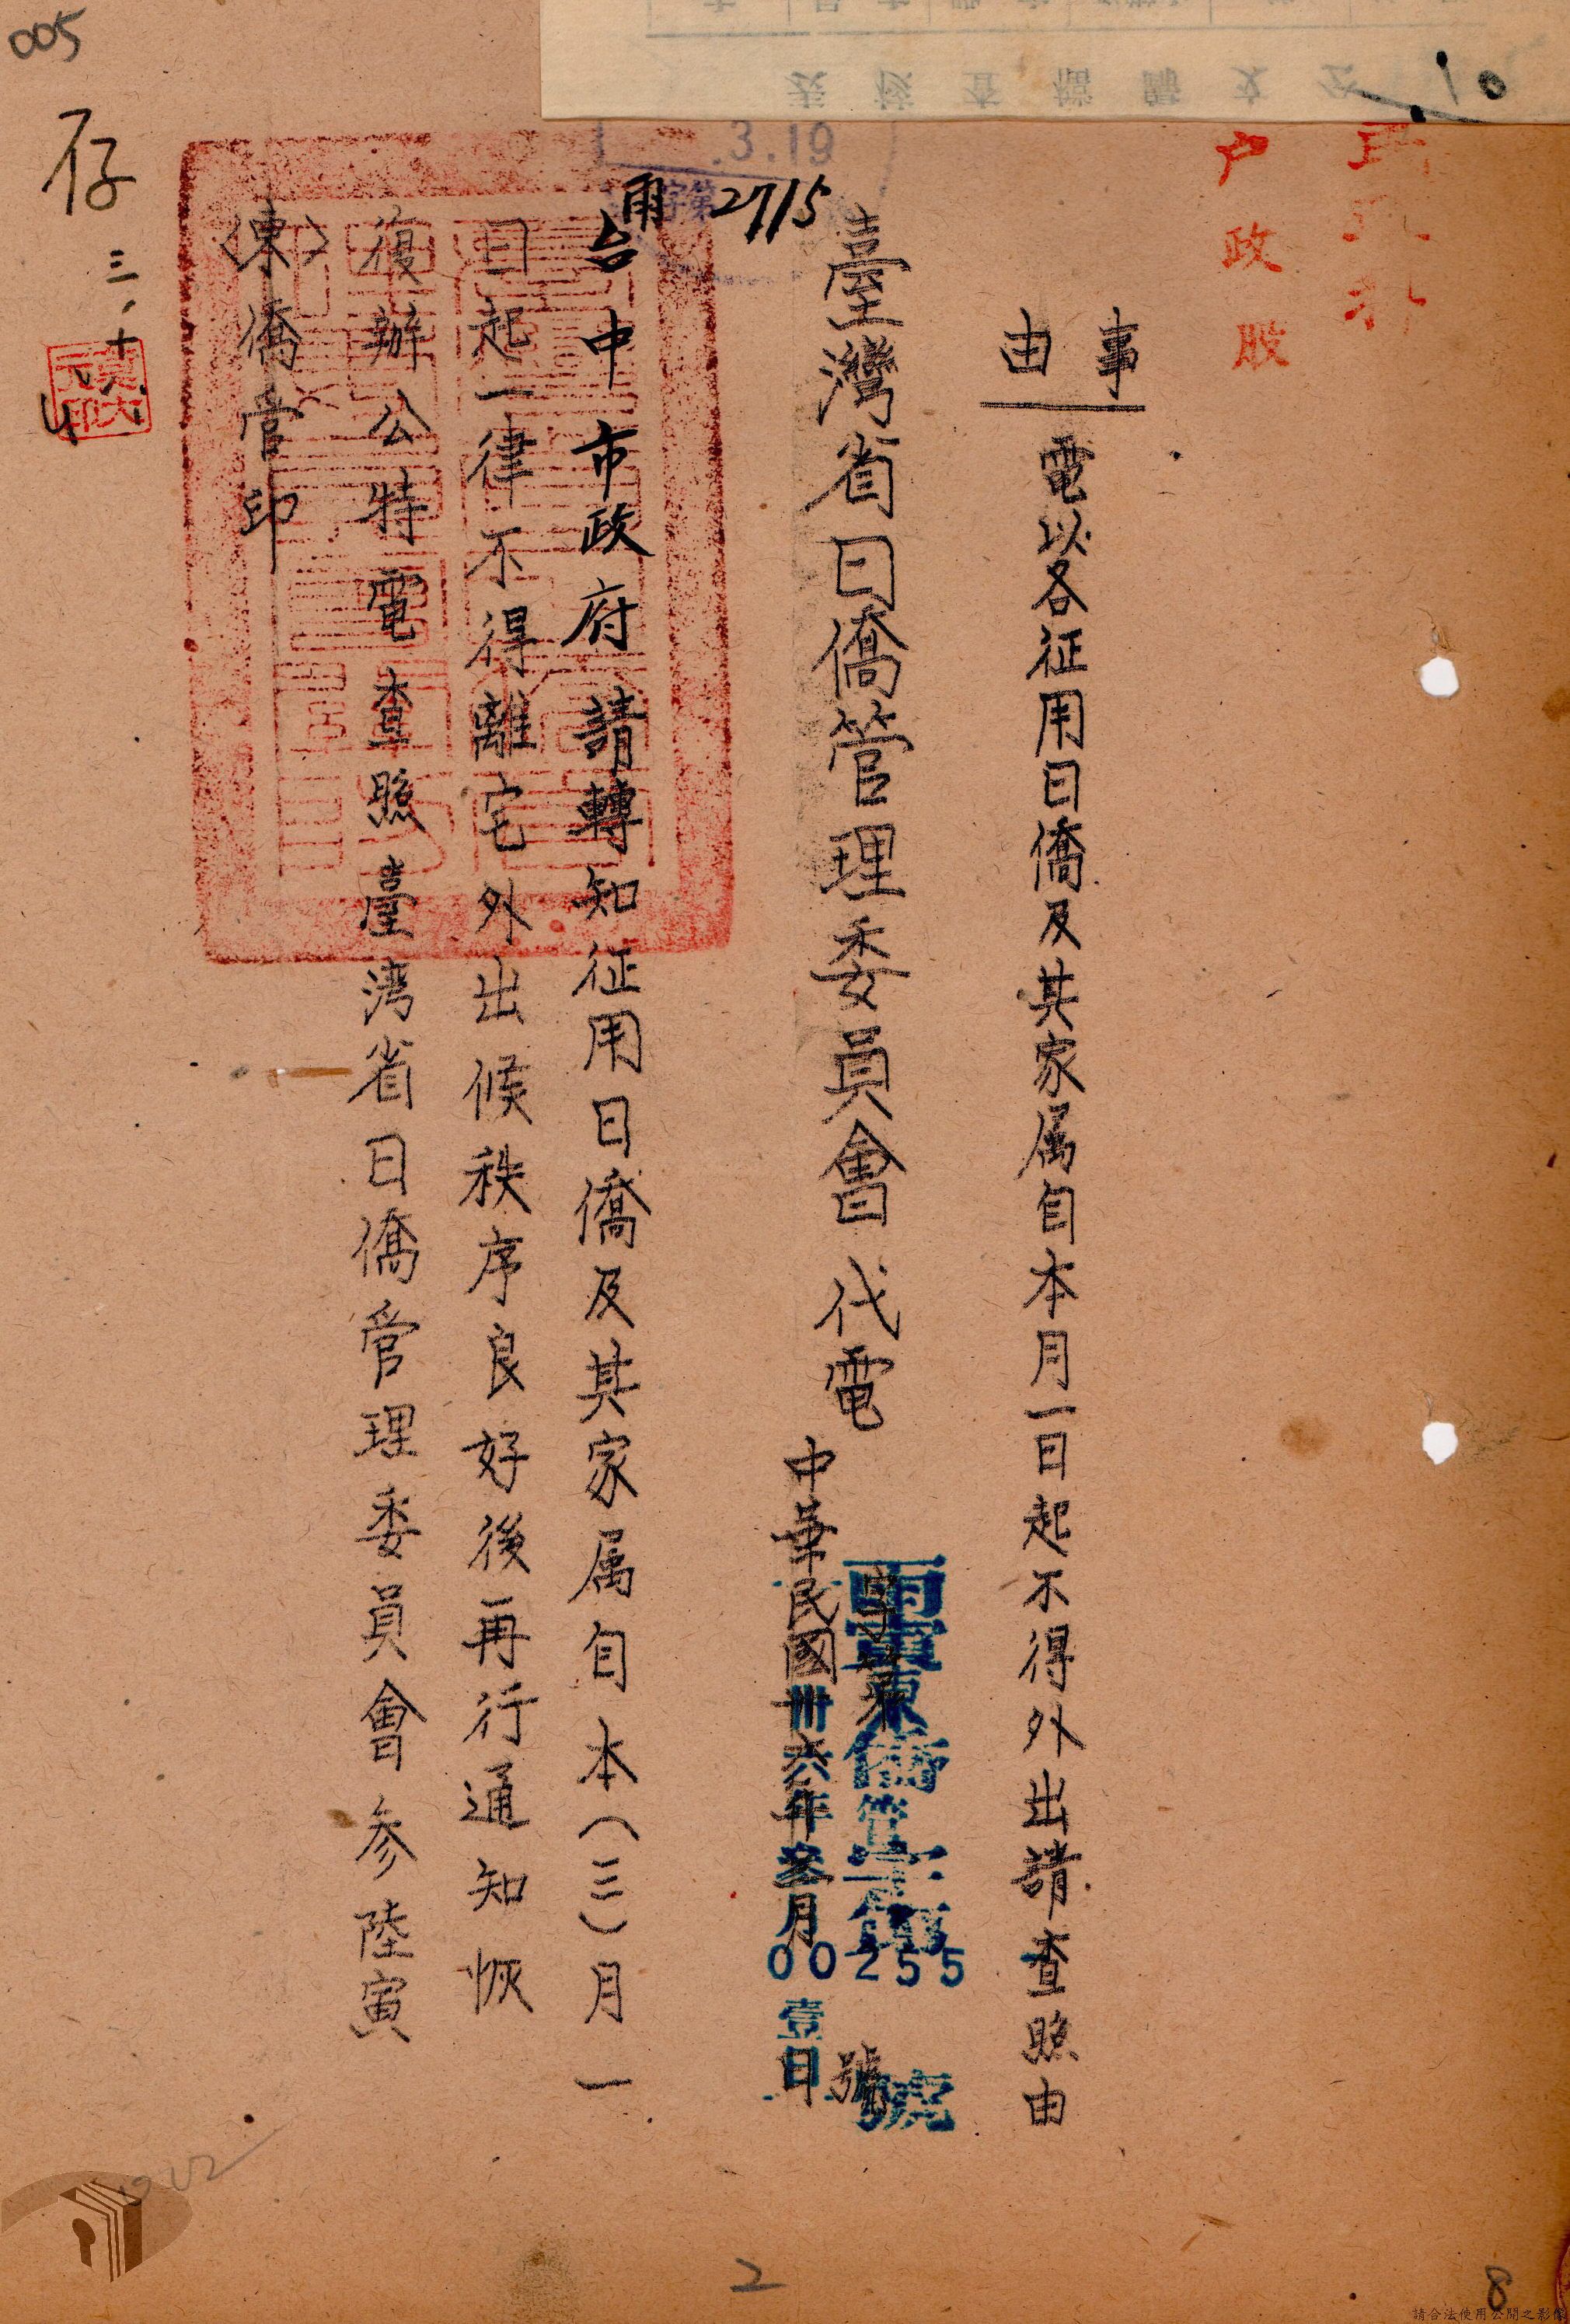 005
10
公文歸檔查核表
民政科
戶政股
事由
電以各征用日僑及其家属自本月一日起不得外出請查照由
臺灣省日僑管理委員會代電
字第 號
寅東僑管字第
00255
號
中華民國卅六年叁月壹日
3.19
字第
2715
台中市政府請轉知征用日僑及其家属自本(三)月一
日起一律不得離宅外出候秩序良好後再行通知恢
復辦公特電查照臺湾省日僑管理委員會参陸寅
〈東〉僑管印
存
三、十
2
8
請合法使用公開之影像